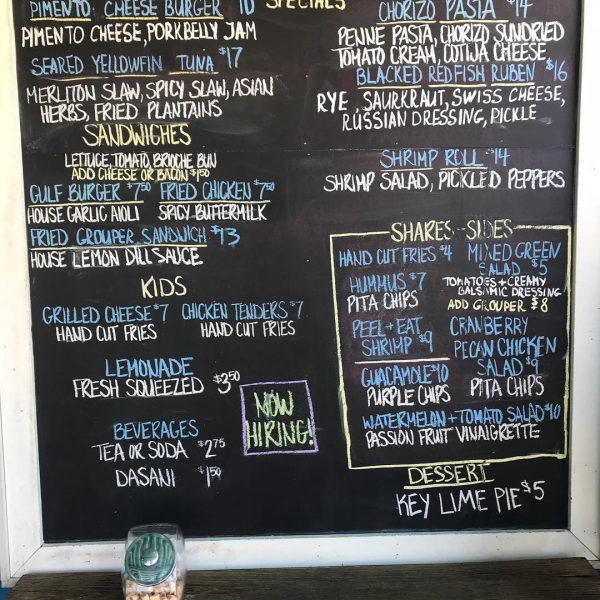 SPECIALS
PIMENTO CHEESE BURGER 10
PIMENTO CHEESE, PORKBELLY JAM
SEARED YELLOWFIN TUNA $17
MERLITON SLAW, SPICY SLAW, ASIAN
HERBS, FRIED PLANTAINS
CHORIZO PASTA $14
PENNE PASTA, CHORIZO, SUNDRIED
TOMATO CREAM, COTIJA CHEESE
BLACKED REDFISH RUBEN $16
RYE, SAURKRAUT, SWISS CHEESE,
RUSSIAN DRESSING, PICKLE
SHRIMP ROLL $14
SHRIMP SALAD, PICKLED PEPPERS
SANDWICHES
LETTUCE, TOMATO, BRIOCHE BUN
ADD CHEESE OR BACON $1.50
GULF BURGER $7.50
HOUSE GARLIC AIOLI
FRIED CHICKEN $7.50
SPICY BUTTERMILK
FRIED GROUPER SANDWICH $13
HOUSE LEMON DILL SAUCE
KIDS
GRILLED CHEESE $7
HAND CUT FRIES
CHICKEN TENDERS $7
HAND CUT FRIES
LEMONADE
FRESH SQUEEZED $3.50
BEVERAGES
TEA OR SODA $2.75
DASANI $1.50
NOW
HIRING!
SHARES - SIDES
HAND CUT FRIES $4
HUMMUS $7
PITA CHIPS
PEEL + EAT
SHRIMP $9
GUACAMOLE $10
PURPLE CHIPS
MIXED GREEN
SALAD $5
TOMATOES + CREAMY
BALSAMIC DRESSING
ADD GROUPER $8
CRANBERRY
PECAN CHICKEN
SALAD $9
PITA CHIPS
WATERMELON + TOMATO SALAD $10
PASSION FRUIT VINAIGRETTE
DESSERT
KEY LIME PIE $5